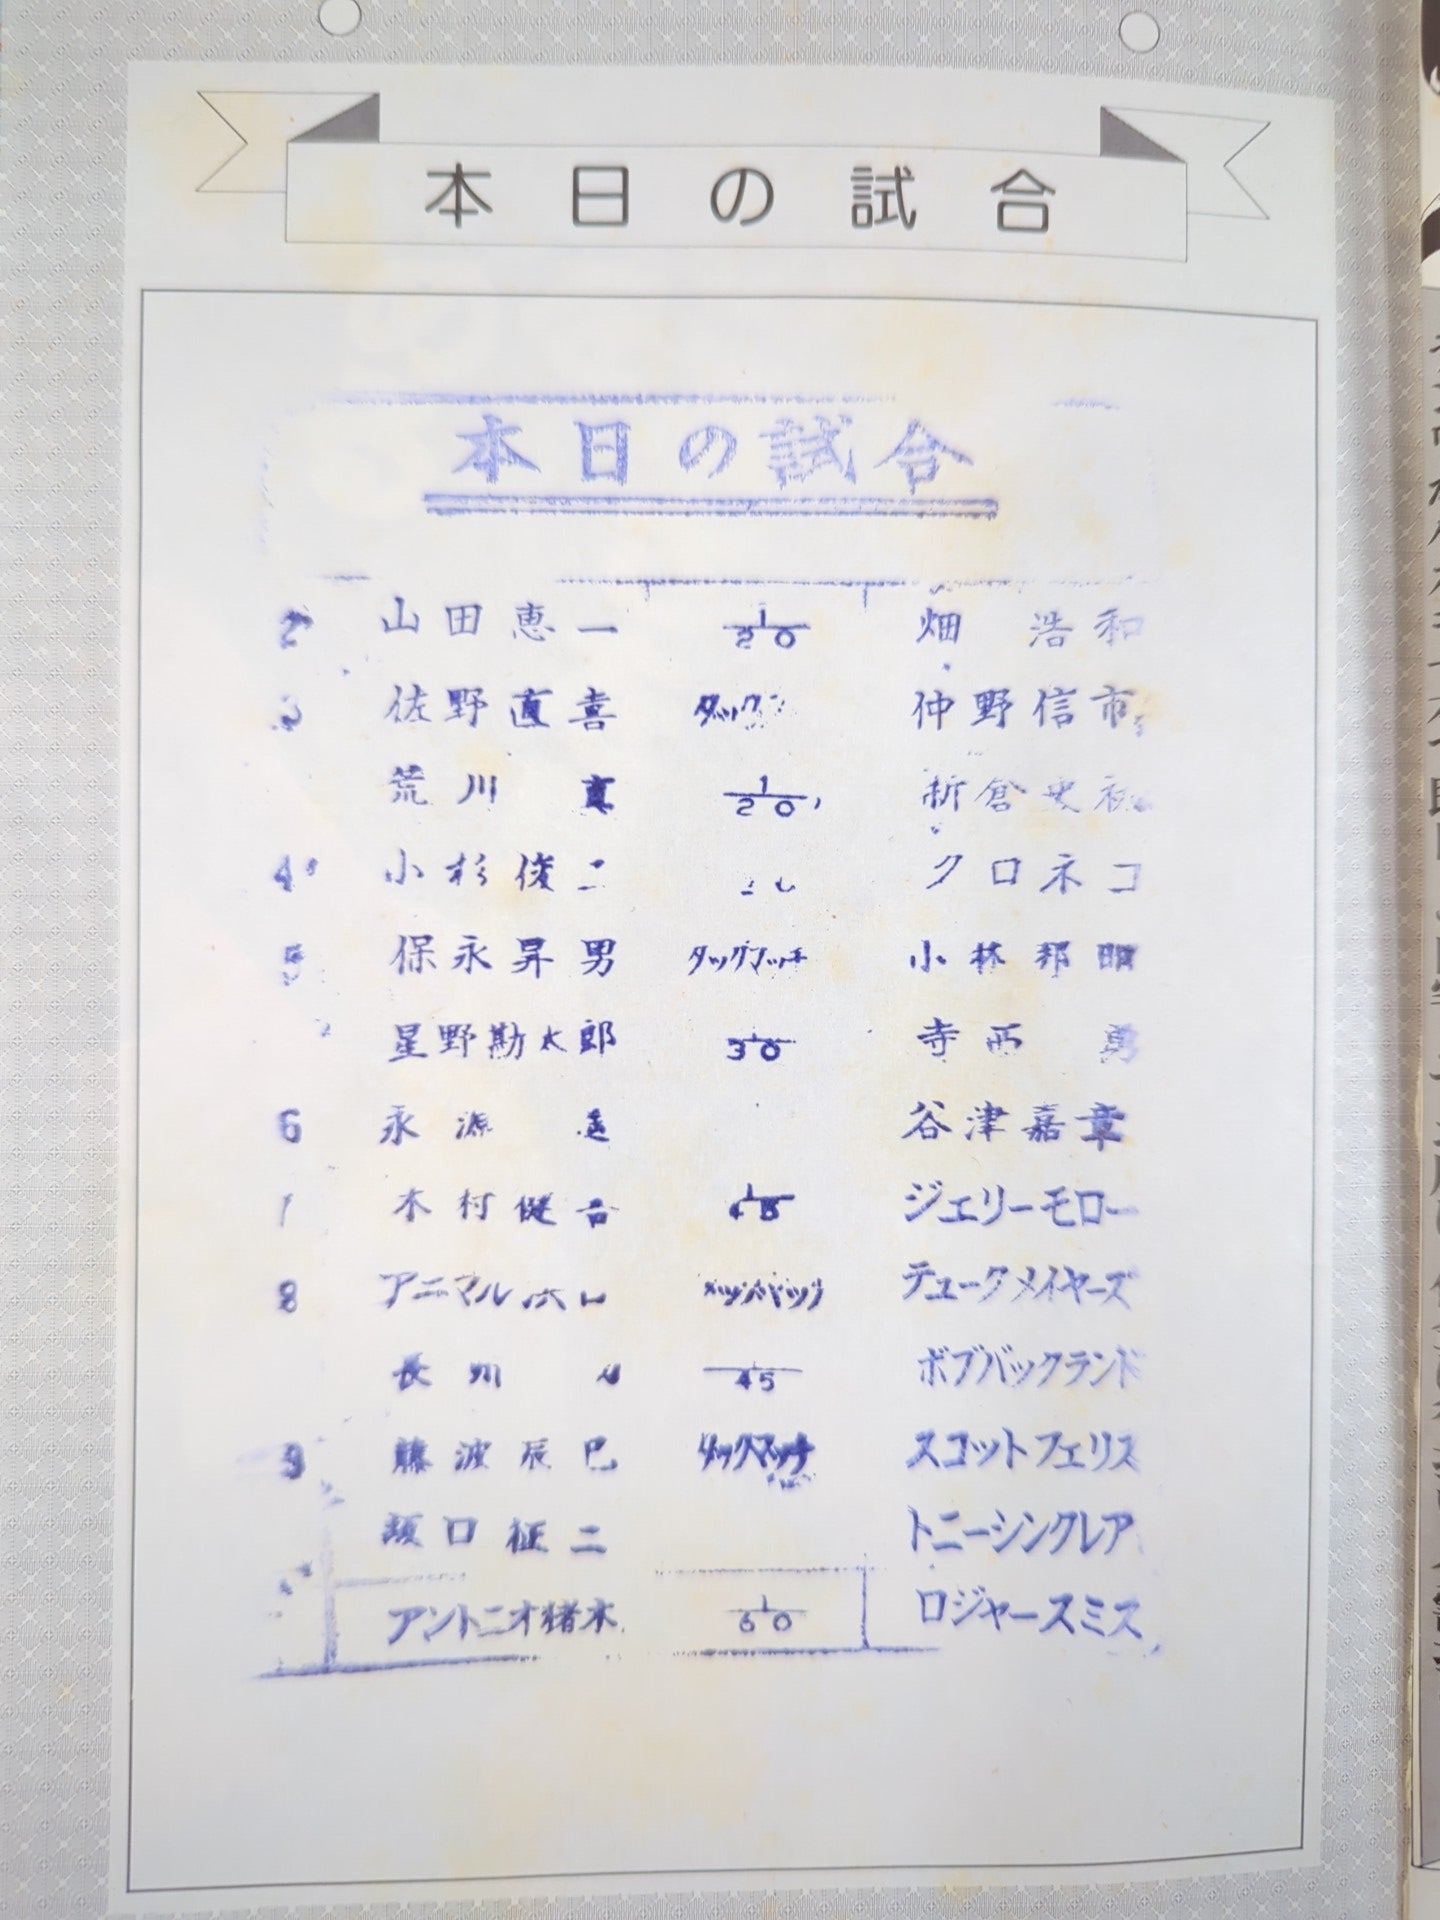 本日の試合
本日の試合
2 山田恵一 1/20 畑 浩和
3 佐野直喜 タッグ 仲野信市
荒川 真 1/20 新倉史裕
4 小杉俊二 クロネコ
5 保永昇男 タッグマッチ 小林邦昭
星野勘太郎 1/30 寺西 勇
6 永源 遙 谷津嘉章
木村健吾 1/45 ジェリーモロー
8 アニマル テュークメイヤーズ
長州 45 ボブバックランド
9 藤波辰巳 タッグマッチ スコットフェリス
坂口征二 トニーシンクレア
アントニオ猪木 1/60 ロジャースミス